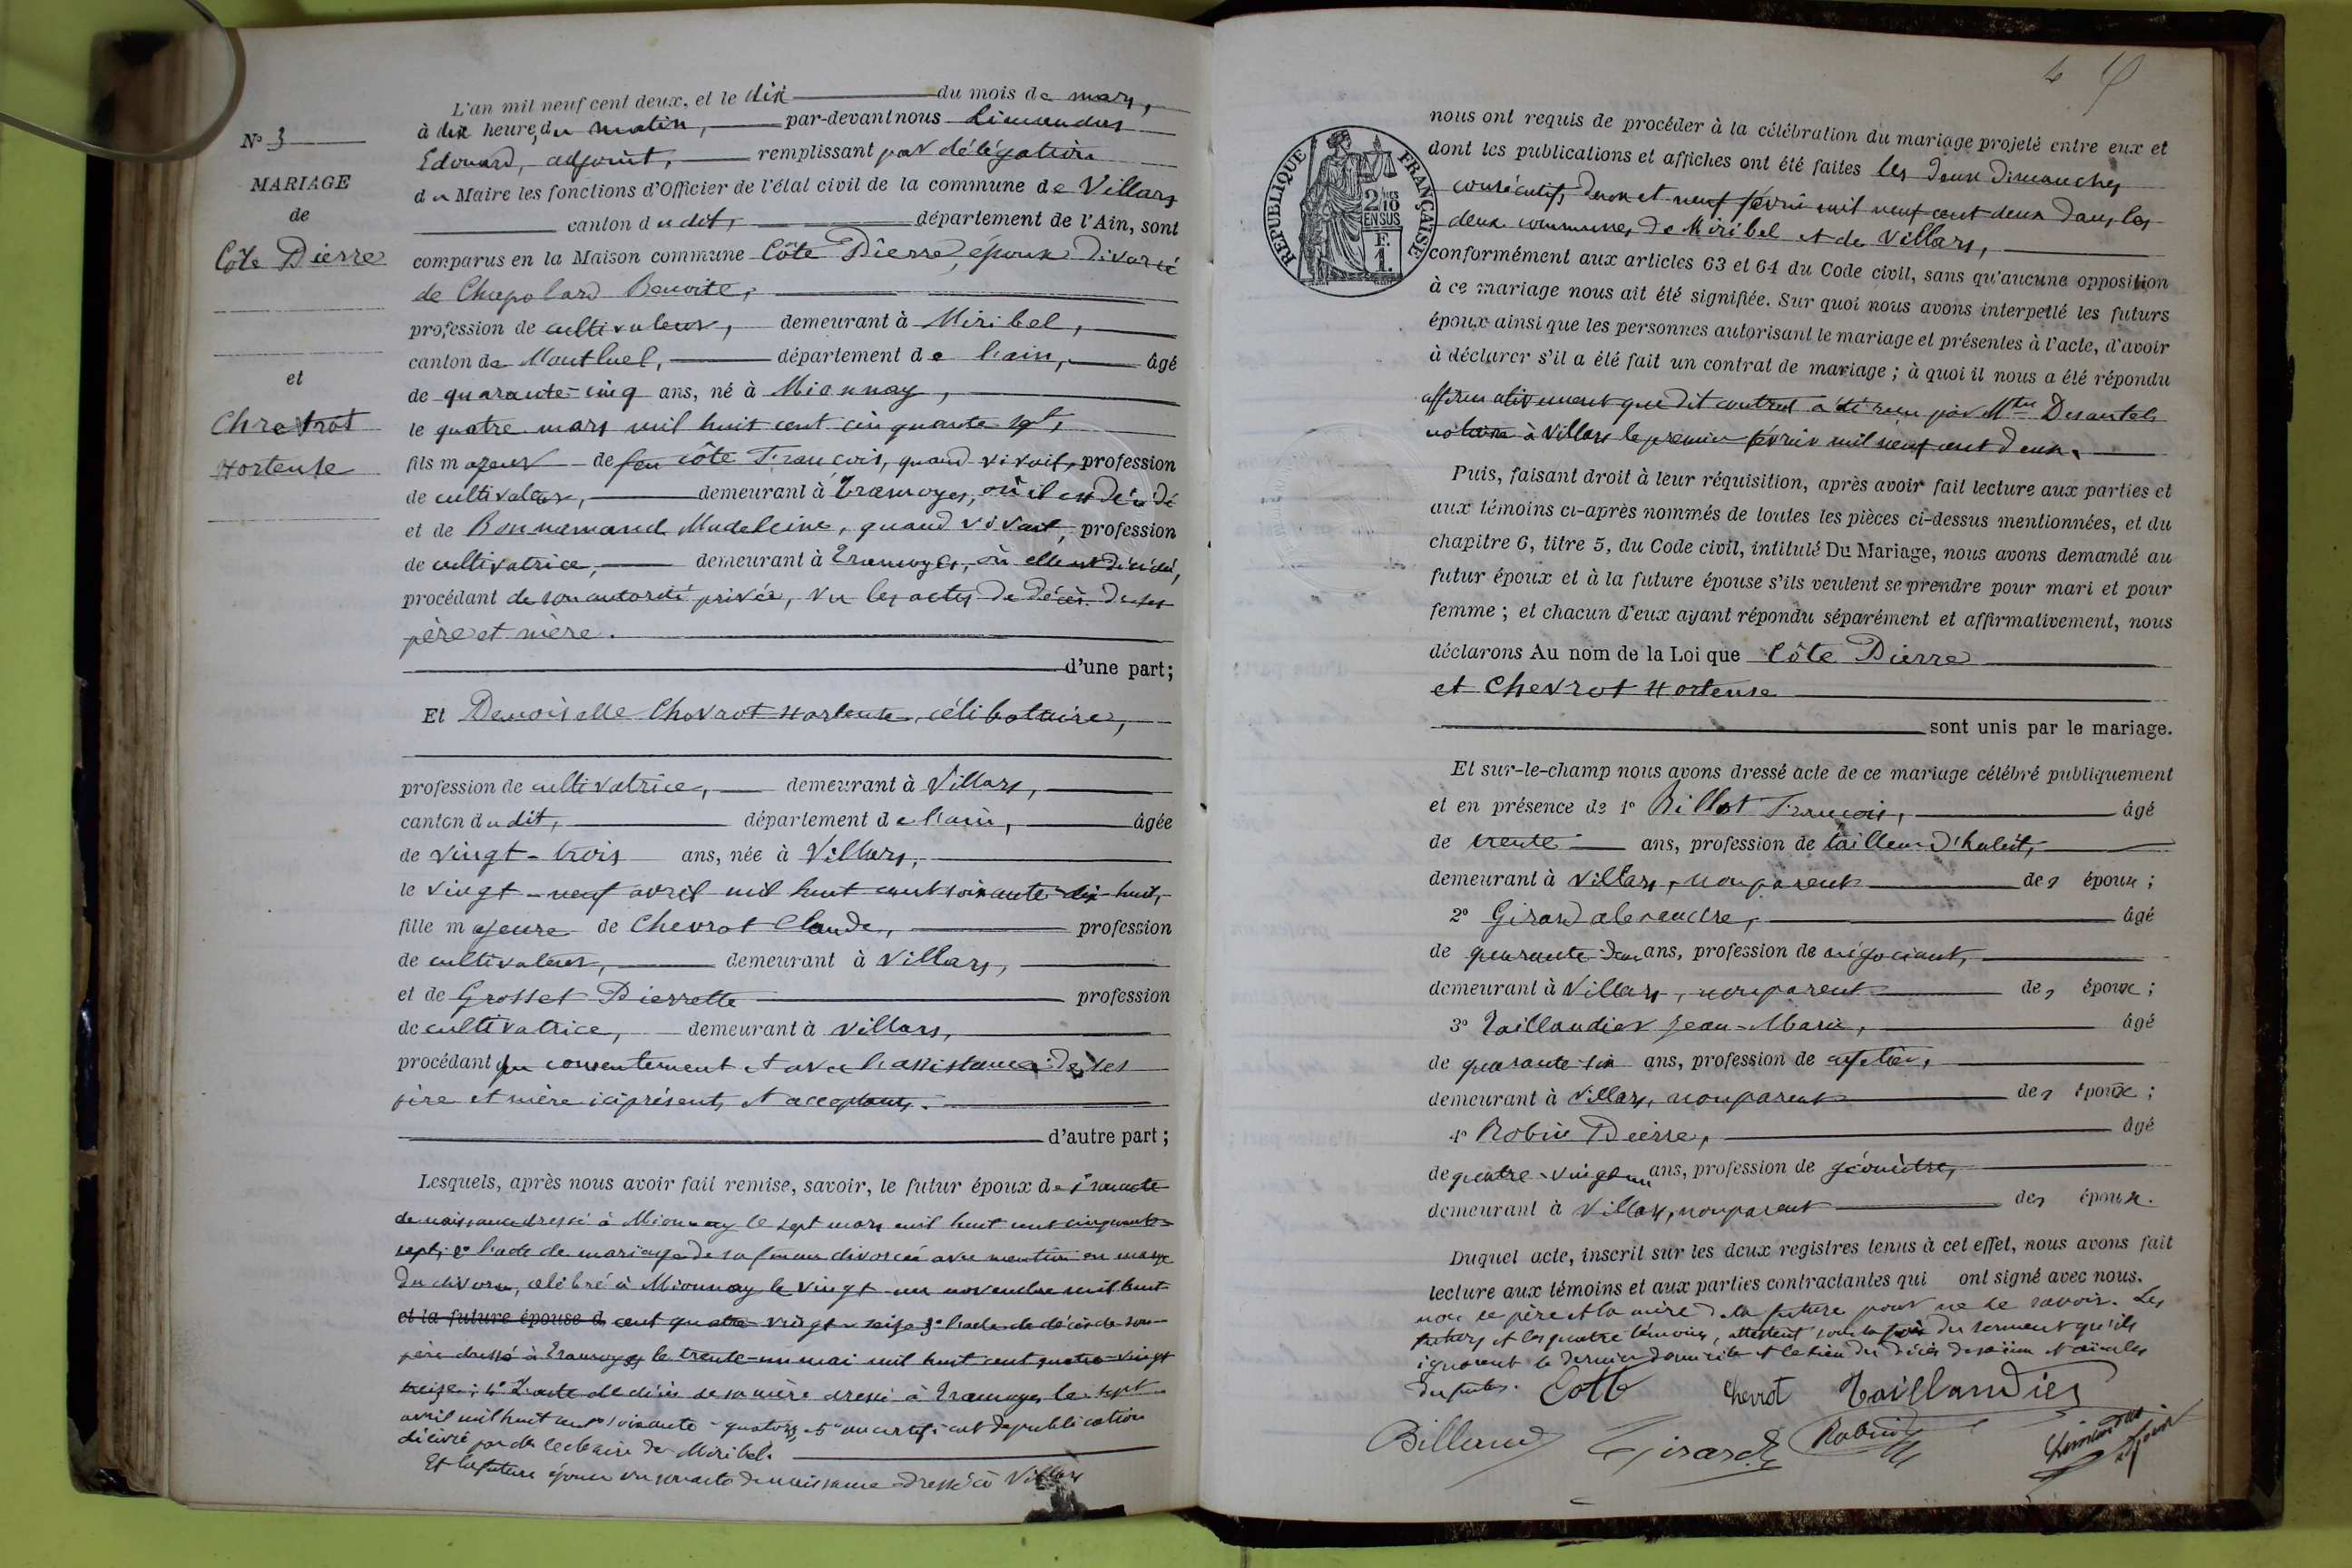 N° 3
MARIAGE
de
Côte Pierre
et
Chevrot
Hortense
L'an mil neuf cent deux, et le dix du mois de mars,
à dix heures du matin, par-devant nous Limandas
Edouard, adjoint, remplissant par délégation
du Maire les fonctions d'Officier de l'état civil de la commune de Villars
canton dudit, département de l'Ain, sont
comparus en la Maison commune Côte Pierre, époux divorcé
de Chapolard Benoite,
profession de cultivateur, demeurant à Miribel,
canton de Montluel, département de l'ain, âgé
de quarante-cinq ans, né à Mionnay,
le quatre mars mil huit cent cinquante sept,
fils majeur de feu Côte François, quand vivait, profession
de cultivateur, demeurant à Tramoyes, où il est décédé
et de Bonnamand Madeleine, quand vivait, profession
de cultivatrice, demeurant à Tramoyes, où elle est décédée,
procédant de son autorité privée, vu les actes de décès de ses
père et mère.
d'une part;
Et Demoiselle Chevrot Hortense, célibataire,
profession de cultivatrice, demeurant à Villars,
canton dudit, département de l'ain, âgée
de vingt-trois ans, née à Villars,
le vingt-neuf avril mil huit cent soixante dix-huit,
fille majeure de Chevrot Claude, profession
de cultivateur, demeurant à Villars,
et de Grosset Pierrette profession
de cultivatrice, demeurant à Villars,
procédant du consentement et avec l'assistance de ses
père et mère ici présents et acceptants.
d'autre part;
Lesquels, après nous avoir fait remise, savoir, le futur époux de 1° son acte
de naissance dressé à Mionnay le sept mars mil huit cent cinquante-
sept; 2° l'acte de mariage de sa femme divorcée avec mention en marge
du divorce, célébré à Mionnay le vingt-un novembre mil huit
et la future épouse d cent quatre-vingt-seize 3° l'acte de décès de son
père dressé à Tramoyes le trente-un mai mil huit cent quatre-vingt
treize; 4° L'acte de décès de sa mère dressé à Tramoyes le sept
avril mil huit cent soixante-quatorze et 5° un certificat de publication
délivré par le Maire de Miribel.
Et la future épouse son acte de naissance dressé à Villars
4
RÉPUBLIQUE FRANÇAISE
2/10 EN SUS
F. 1.
nous ont requis de procéder à la célébration du mariage projeté entre eux et
dont les publications et affiches ont été faites les deux Dimanches
consécutifs deux et neuf février mil neuf cent deux dans les
deux communes de Miribel et de Villars,
conformément aux articles 63 et 64 du Code civil, sans qu'aucune opposition
à ce mariage nous ait été signifiée. Sur quoi nous avons interpellé les futurs
époux ainsi que les personnes autorisant le mariage et présentes à l'acte, d'avoir
à déclarer s'il a été fait un contrat de mariage; à quoi il nous a été répondu
affirmativement que dit contrat a été reçu par Mtre Desautels
notaire à Villars le premier février mil neuf cent deux.
Puis, faisant droit à leur réquisition, après avoir fait lecture aux parties et
aux témoins ci-après nommés de toutes les pièces ci-dessus mentionnées, et du
chapitre 6, titre 5, du Code civil, intitulé Du Mariage, nous avons demandé au
futur époux et à la future épouse s'ils veulent se prendre pour mari et pour
femme; et chacun d'eux ayant répondu séparément et affirmativement, nous
déclarons Au nom de la Loi que Côte Pierre
et Chevrot Hortense
sont unis par le mariage.
Et sur-le-champ nous avons dressé acte de ce mariage célébré publiquement
et en présence de 1° Billot François, âgé
de trente ans, profession de tailleur d'habits,
demeurant à Villars, non parent des époux;
2° Girard alexandre, âgé
de quarante deux ans, profession de négociant,
demeurant à Villars, non parent des époux;
3° Taillandier Jean-Marie, âgé
de quarante-six ans, profession de
demeurant à Villars, non parent des époux;
4° Robin Pierre, âgé
de quatre-vingt-un ans, profession de géomètre,
demeurant à Villars, non parent des époux.
Duquel acte, inscrit sur les deux registres tenus à cet effet, nous avons fait
lecture aux témoins et aux parties contractantes qui ont signé avec nous.
non le père et la mère de la future pour ne le savoir. Les
futurs et les quatre témoins, attestent sous la foi du serment qu'ils
ignorent le dernier domicile et le lieu du décès des aïeux et aïeules
du futur. Cotte Chevrot Taillandier
Billaud Girard Robin Limandas
adjoint